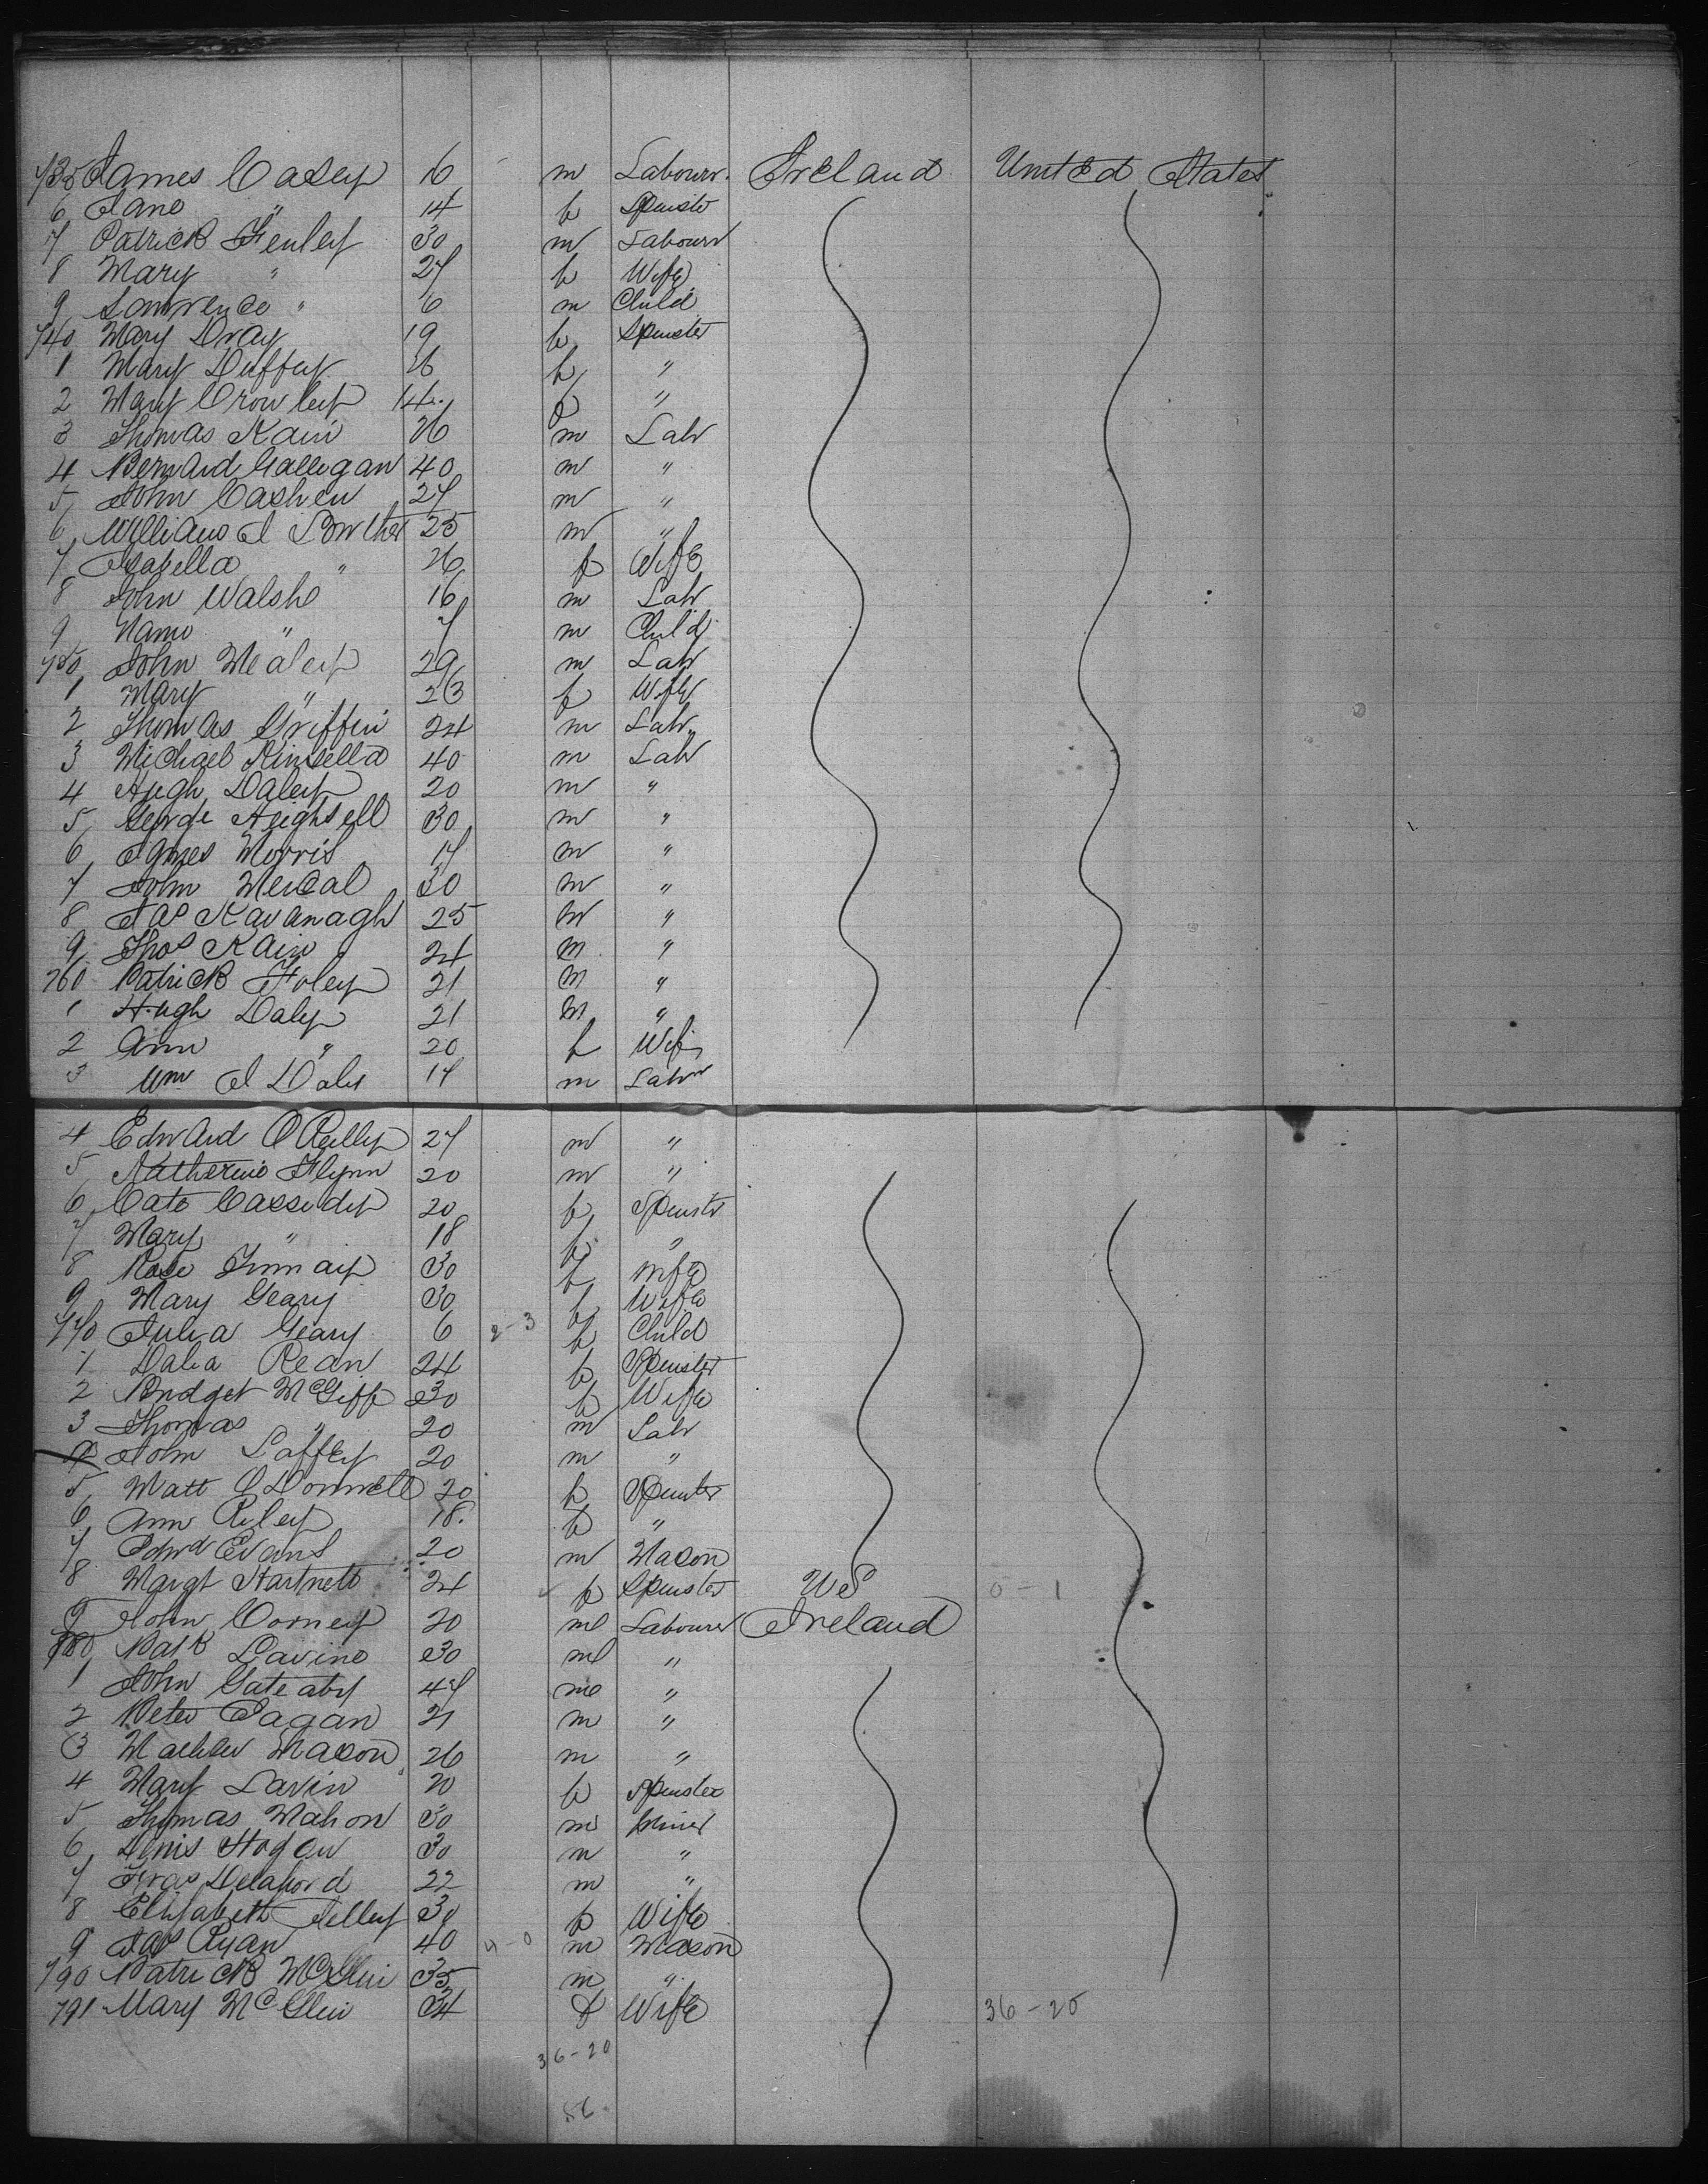 735 James Casey 16 m Labourr. Ireland United States
6 Jane " 14 f Spinstr
7 Patrick Fenley 30 m Labourr
8 Mary " 27 f Wife
9 Lawrence " 6 m Child
740 Mary Dray 19 f Spinster
1 Mary Duffey 26 f "
2 Mary Crowley 14 f "
3 Thomas Kain 26 m Labr
4 Bernard Galligan 40 m "
5 John Cashen 27 m "
6 William J Lowther 25 m "
7 Isabella " 26 f Wife
8 John Walshe 16 m Labr
9 " 7 m Child
750 John Mealey 29 m Labr
1 Mary " 23 f Wife
2 Thomas Griffin 24 m Labr
3 Michael Kinsella 40 m Labr
4 Hugh Daley 20 m "
5 George 30 m "
6 James Morris 17 m "
7 John 30 m "
8 Jas Kavanagh 25 m "
9 Thos Kain 24 m "
760 Patrick Foley 21 m "
1 Hugh Daly 21 m "
2 Ann " 20 f Wife
3 Wm J Daly 17 m Labr
4 Edward O Reilly 27 m "
5 Flynn 20 m "
6 Cate Cassidy 20 f Spinstr
7 Mary " 18 f "
8 Rose 30 f Wife
9 Mary Geary 30 f Wife
770 Julia Geary 6 2-3 f Child
1 Dalia Rean 24 f Spinster
2 Bridget McGiff 30 f Wife
3 Thomas " 20 m Labr
4 John Laffey 20 m "
5 Matt O Donnell 20 f Spinster
6 Ann Riley 18 f "
7 Edwd Evans 20 m Mason
8 Margt Hartnett 24 f Spinster US 0-1
9 John Comey 20 ml Labourer Ireland
780 Patk Lavine 30 ml "
1 John Gateaby 47 ml "
2 Peter Fagan 21 m "
3 Mathew Mason 26 m "
4 Mary Lavin 20 f Spinster
5 Thomas Mahon 30 m Miner
6 Denis Hogan 30 m "
7 Fras 22 m "
8 Elizabeth 30 f Wife
9 Jas Ryan 40 4-0 m Mason
790 Patrick McGlin 35 m "
791 Mary McGlin 34 f Wife 36-20
36-20
56